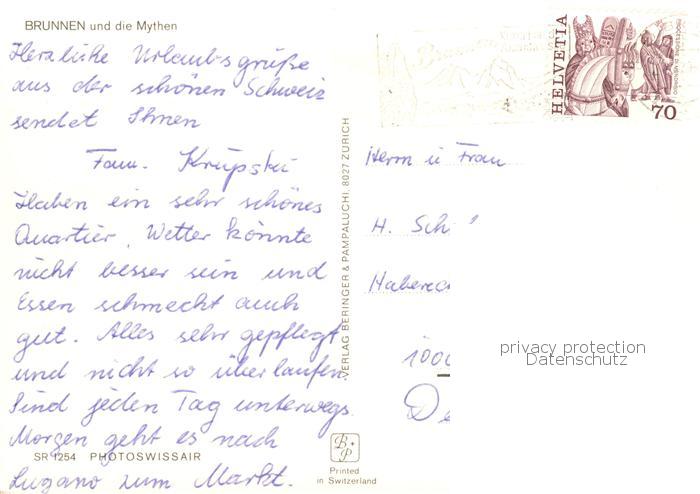 BRUNNEN und die Mythen
Herzliche Urlaubsgrüße
aus der schönen Schweiz
sendet Ihnen
Fam. Krupski
Haben ein sehr schönes
Quartier, Wetter könnte
nicht besser sein und
Essen schmeckt auch
gut. Alles sehr gepflegt
und nicht so überlaufen.
Sind jeden Tag unterwegs.
Morgen geht es nach
SR 1254 PHOTOSWISSAIR
Lugano zum Markt.
VERLAG BERINGER & PAMPALUCHI, 8027 ZÜRICH
B+P
Printed
in Switzerland
HELVETIA
PROCESSIONE DI MENDRISIO
70
Brunnen
Herrn u Frau
H. Sch
Haberec
1000
De
privacy protection
Datenschutz